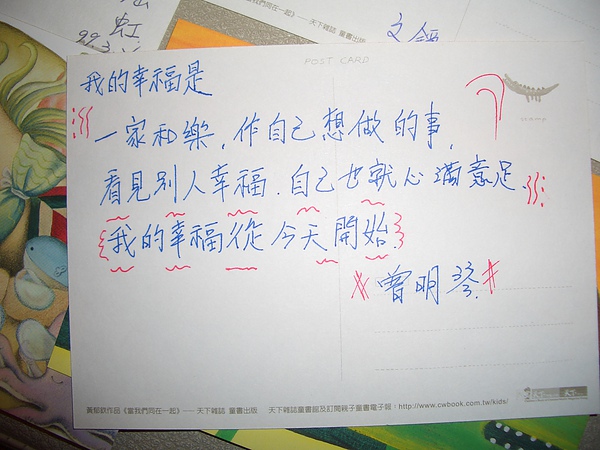 虹
99.3.
文
POST CARD
我的幸福是
一家和樂,作自己想做的事,
看見別人幸福.自己也就心滿意足.
我的幸福從今天開始.
曾明琴
黃郁欽作品《當我們同在一起》── 天下雜誌 童書出版 天下雜誌童書館及訂閱親子童書電子報:http://www.cwbook.com.tw/kids/